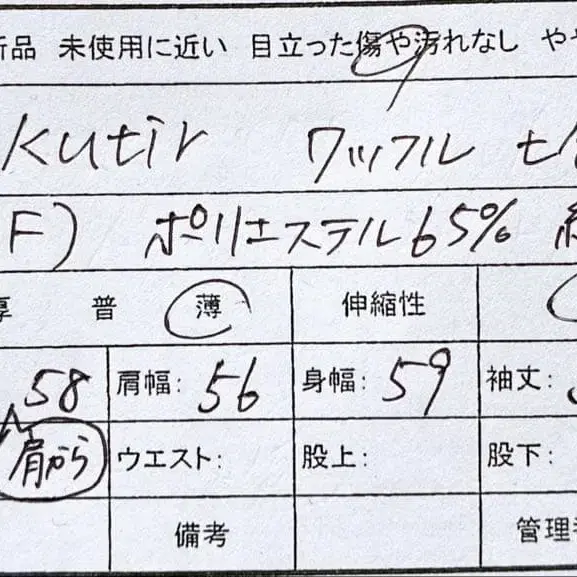 新品 未使用に近い 目立った傷や汚れなし やや
kutir ワッフル
F) ポリエステル65%
厚 普 薄 伸縮性
58 肩幅: 56 身幅: 59 袖丈:
肩から ウエスト: 股上: 股下:
備考 管理